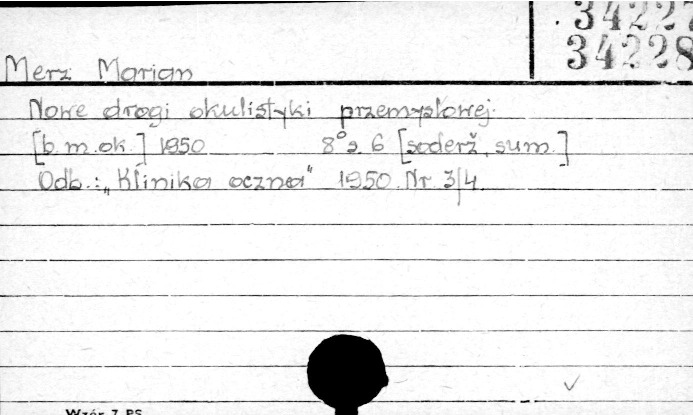 34227
34228
Merz Marian
Nowe drogi okulistyki przemysłowej.
[b.m.ok.] 1950 8° s. 6 [soderž, sum.]
Odb.: „Klinika oczna" 1950. Nr. 3/4.
Wzór 7 PS